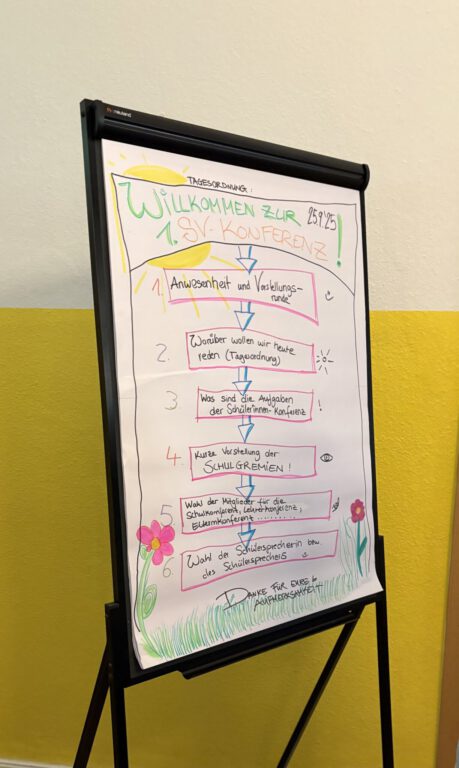 neuland
TAGESORDNUNG:
WILLKOMMEN ZUR
25.9.'25
1. SV-KONFERENZ!
1. Anwesenheit und Vorstellungs-
runde
2. Worüber wollen wir heute
reden (Tagesordnung)
3 Was sind die Aufgaben
der Schülerinnen-Konferenz !
4. Kurze Vorstellung der
SCHULGREMIEN!
5 Wahl der Mitglieder für die
Schulkonferenz, Lehrerkonferenz,
Elternkonferenz.........
6. Wahl der Schülesprecherin bzw.
des Schülesprechers
DANKE FÜR EURE
AUFMERKSAMKEIT